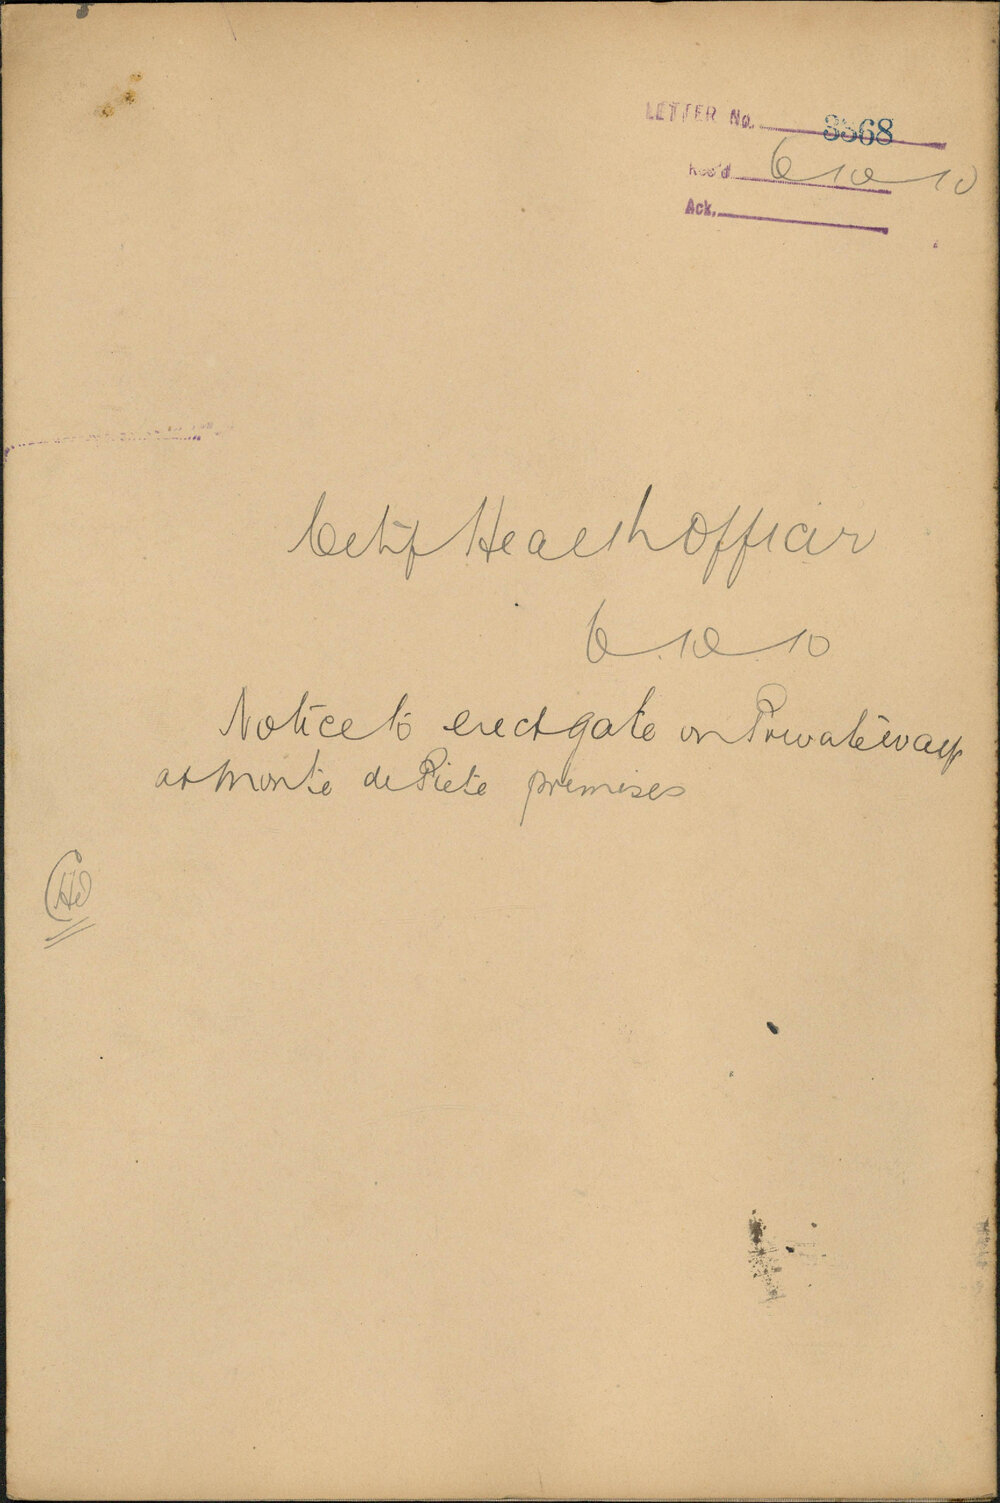 LETTER No. 3568
Rec'd 6 10 10
Ack.
City Health Officer
6.10.10
Notice to erect gate on Private way
at Monte de Piete premises